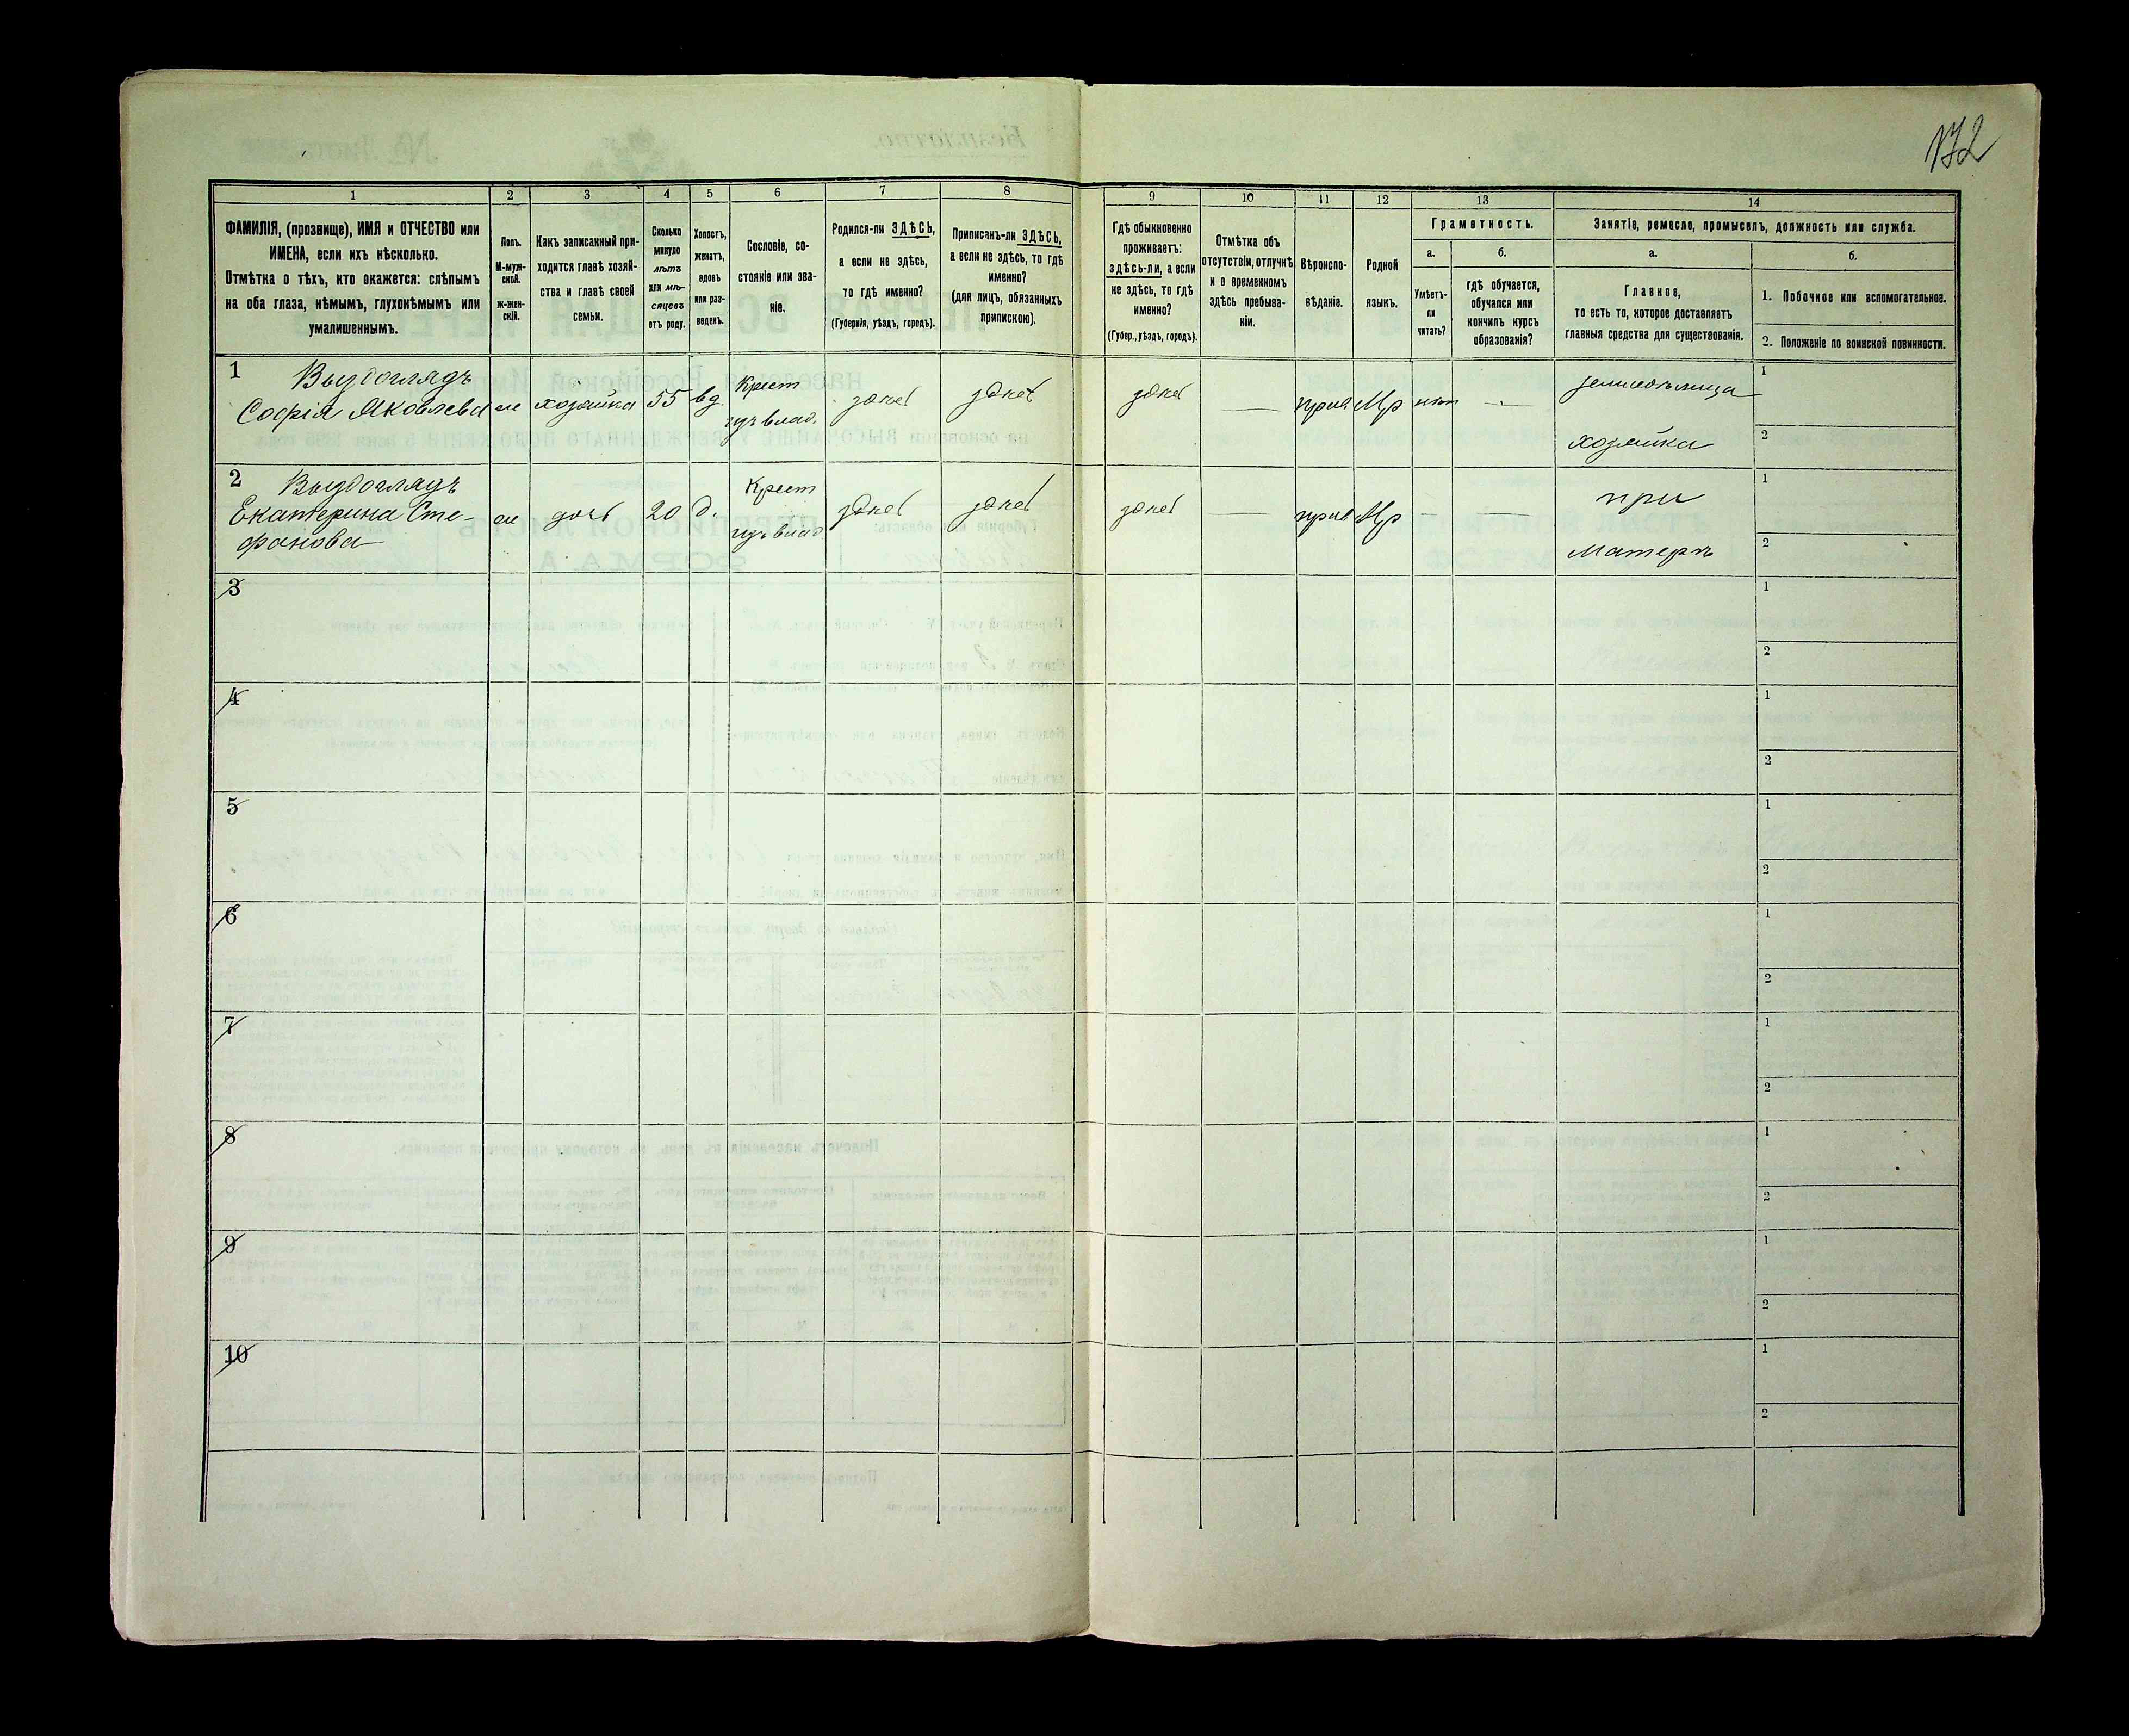 172
1
2
3
4
5
6
7
8
9
10
11
12
13
14
ФАМИЛІЯ, (прозвище), ИМЯ и ОТЧЕСТВО или
ИМЕНА, если ихъ нѣсколько.
Отмѣтка о тѣхъ, кто окажется: слѣпымъ
на оба глаза, нѣмымъ, глухонѣмымъ или
умалишеннымъ.
Полъ.
М-муж-
ской.
ж-жен-
скій.
Какъ записанный при-
ходится главѣ хозяй-
ства и главѣ своей
семьи.
Сколько
минуло
лѣтъ
или мѣ-
сяцевъ
отъ роду.
Холостъ,
женатъ,
вдовъ
или раз-
веденъ.
Сословіе, со-
стояніе или зва-
ніе.
Родился-ли ЗДѢСЬ,
а если не здѣсь,
то гдѣ именно?
(Губернія, уѣздъ, городъ).
Приписанъ-ли ЗДѢСЬ,
а если не здѣсь, то гдѣ
именно?
(для лицъ, обязанныхъ
припискою).
Гдѣ обыкновенно
проживаетъ:
здѣсь-ли, а если
не здѣсь, то гдѣ
именно?
(Губер., уѣздъ, городъ).
Отмѣтка объ
отсутствіи, отлучкѣ
и о временномъ
здѣсь пребыва-
ніи.
Вѣроиспо-
вѣданіе.
Родной
языкъ.
Грамотность.
а.
Умѣетъ-
ли
читать?
б.
гдѣ обучается,
обучался или
кончилъ курсъ
образованія?
Занятіе, ремесло, промыселъ, должность или служба.
а.
Главное,
то есть то, которое доставляетъ
главныя средства для существованія.
б.
1. Побочное или вспомогательное.
2. Положеніе по воинской повинности.
1 Выдоглядъ
Софія Яковлева ж хозяйка 55 вд. Крест изъ влад. здѣсь здѣсь здѣсь — прав Мр нѣт — земледѣлица
хозяйка
1
2
2 Выдоглядъ
Екатерина Сте-
фанова ж дочь 20 д. Крест изъ влад здѣсь здѣсь здѣсь — прав Мр — — при
матери
1
2
3
1
2
4
1
2
5
1
2
6
1
2
7
1
2
8
1
2
9
1
2
10
1
2